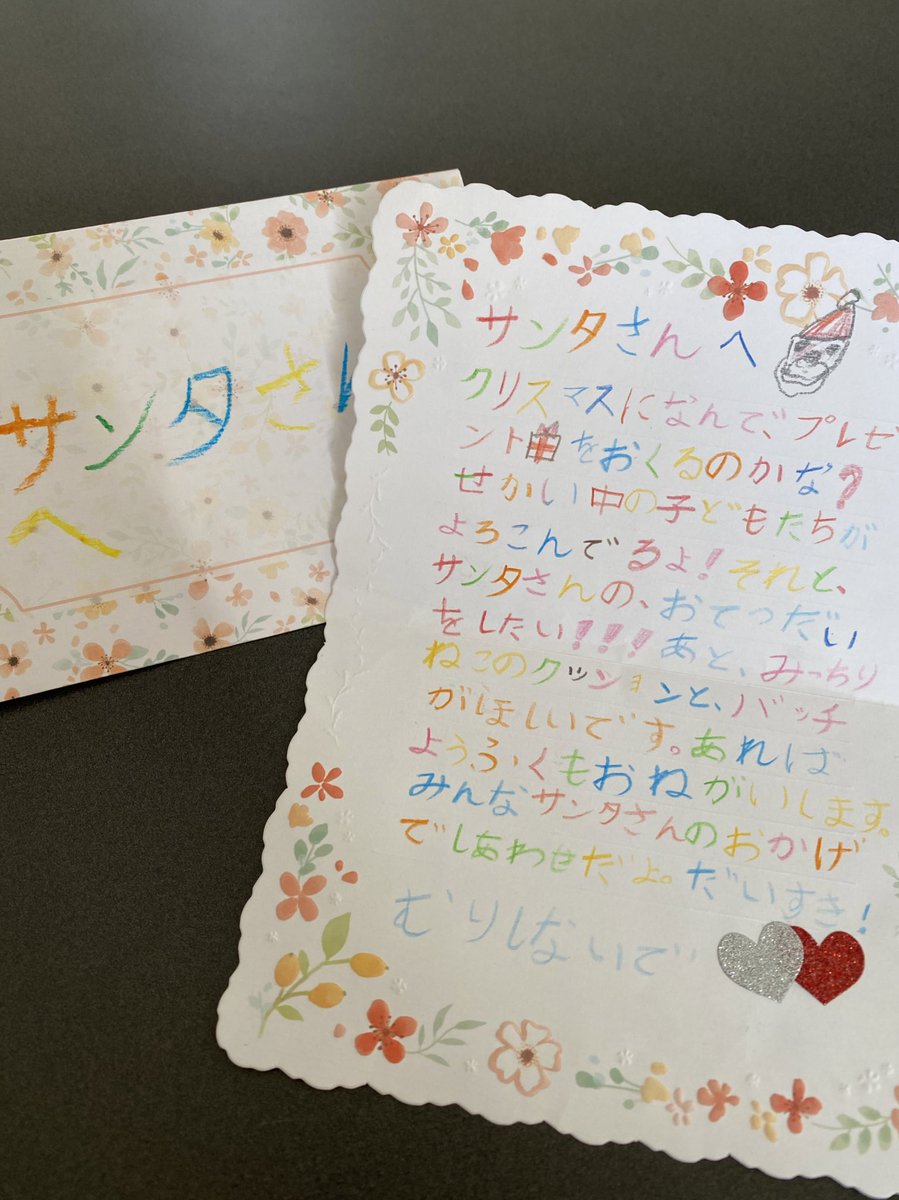 サンタさん
へ
サンタさんへ
クリスマスになんで、プレゼ
ントをおくるのかな?
せかい中の子どもたちが
よろこんでるよ!それと、
サンタさんの、おてつだい
をしたい!!!あと、みっちり
ねこのクッションと、バッチ
がほしいです。あれば
ようふくもおねがいします。
みんなサンタさんのおかげ
でしあわせだよ。だいすき!
むりしないで